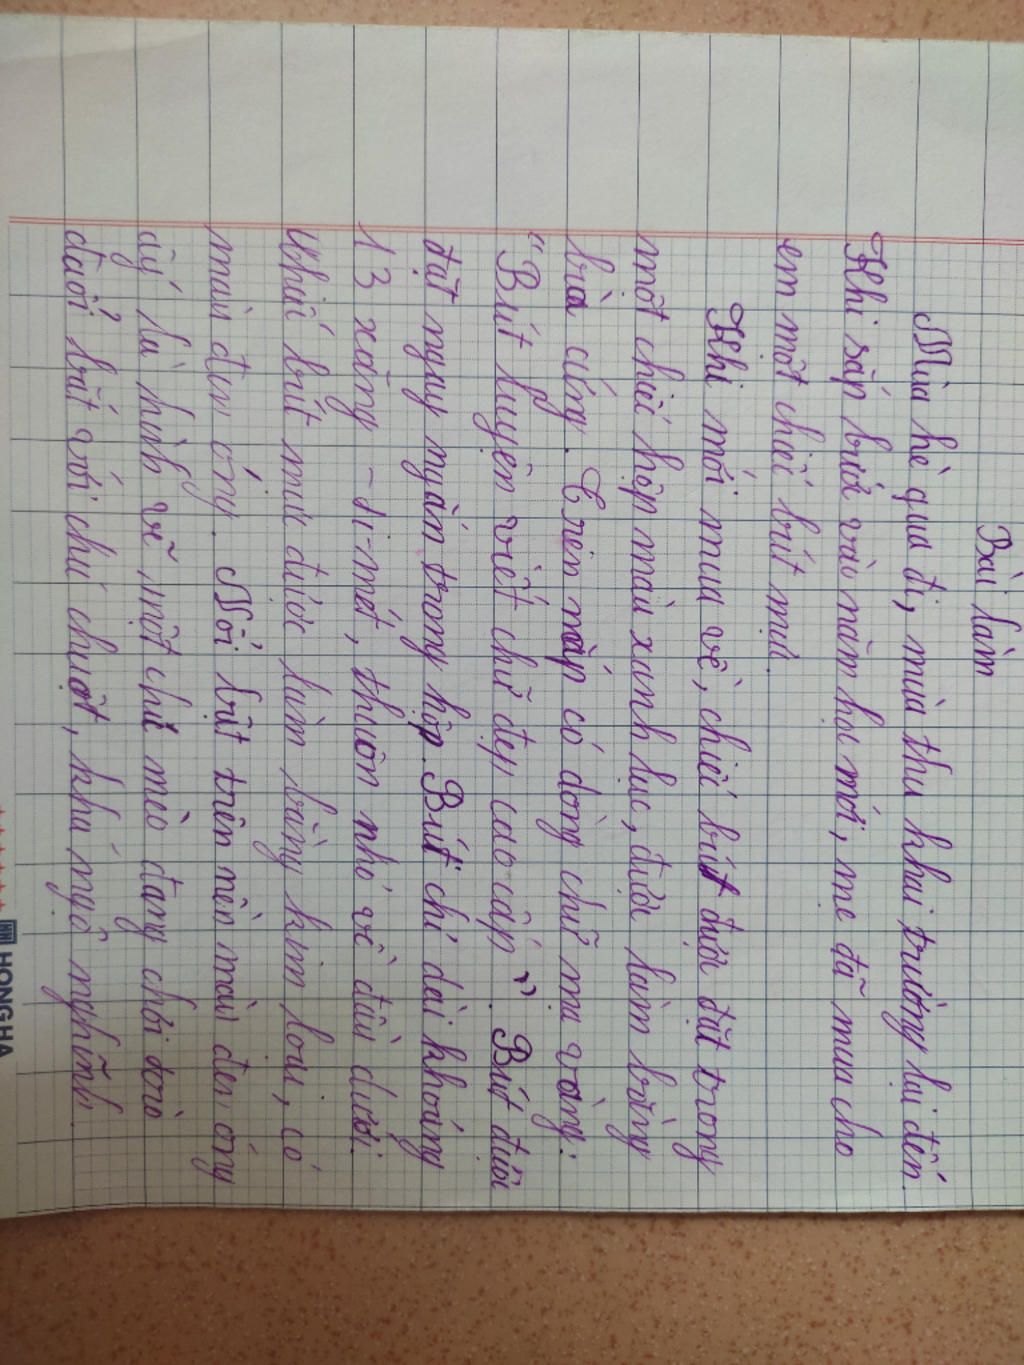 Bài làm
Mùa hè qua đi, mùa thu khai trường lại đến.
Khi sắp bước vào năm học mới, mẹ đã mua cho
em một chiếc bút mực.
Khi mới mua về, chiếc bút được đặt trong
một chiếc hộp màu xanh lục, được làm bằng
bìa cứng. Trên nắp có dòng chữ mạ vàng:
"Bút luyện viết chữ đẹp cao cấp". Bút được
đặt ngay ngắn trong hộp. Bút chỉ dài khoảng
13 xăng-ti-mét, thuôn nhỏ về đầu dưới.
Chiếc bút mực được làm bằng kim loại, có
màu đen óng. Nổi bật trên nền màu đen óng
ấy là hình vẽ một chú mèo đang chơi trò
đuổi bắt với chú chuột, khá ngộ nghĩnh.
HONG HA